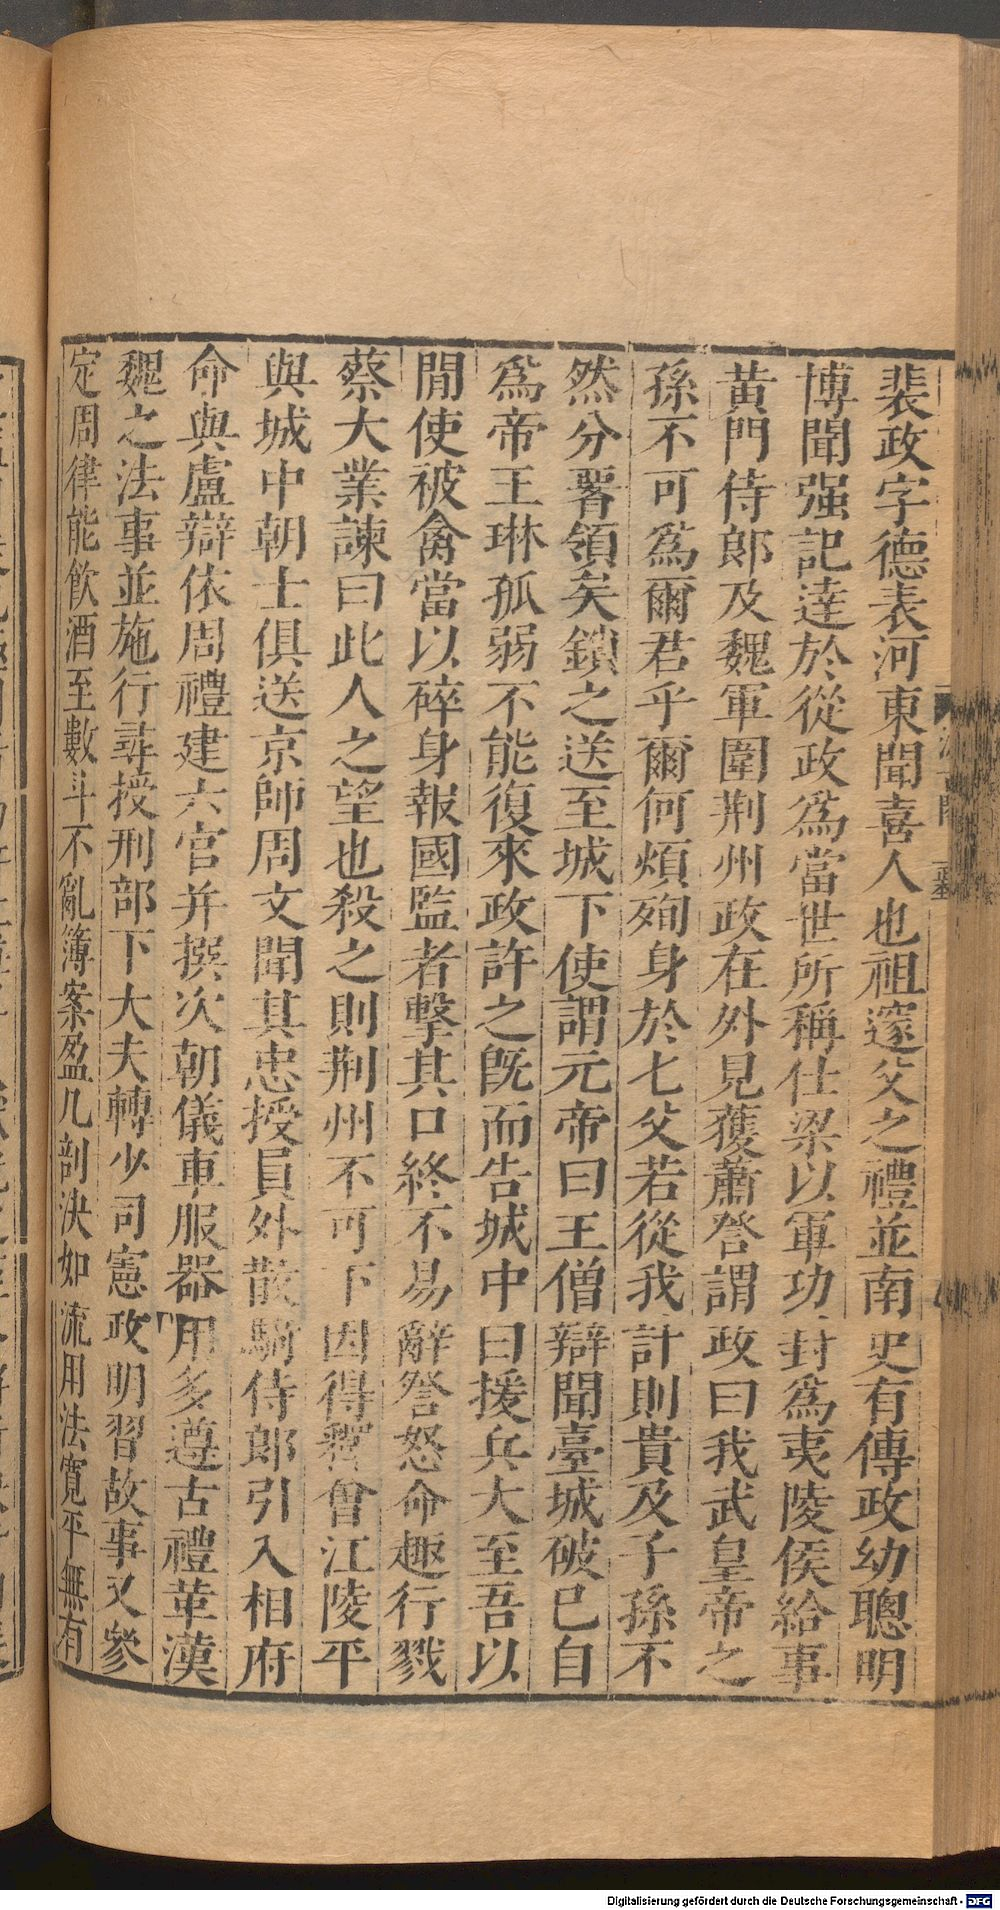 裴政字德表河東聞喜人也祖邃父之禮並南史有傳政幼聰明
博聞强記達於從政為當世所稱仕梁以軍功封為夷陵侯給事
黃門侍郎及魏軍圍荆州政在外見獲蕭詧謂政曰我武皇帝之
孫不可為爾君乎爾何煩殉身於七父若從我計則貴及子孫不
然分胥領矣鎖之送至城下使謂元帝曰王僧辯聞臺城破已自
為帝王琳孤弱不能復來政許之既而告城中曰援兵大至吾以
閒使被禽當以碎身報國監者擊其口終不易辭詧怒命趣行戮
蔡大業諫曰此人之望也殺之則荆州不可下因得釋會江陵平
與城中朝士俱送京師周文聞其忠授員外散騎侍郎引入相府
命與盧辯依周禮建六官并撰次朝儀車服器用多遵古禮革漢
魏之法事並施行尋授刑部下大夫轉少司憲政明習故事又參
定周律能飲酒至數斗不亂簿案盈几剖決如流用法寬平無有
Digitalisierung gefördert durch die Deutsche Forschungsgemeinschaft - DFG